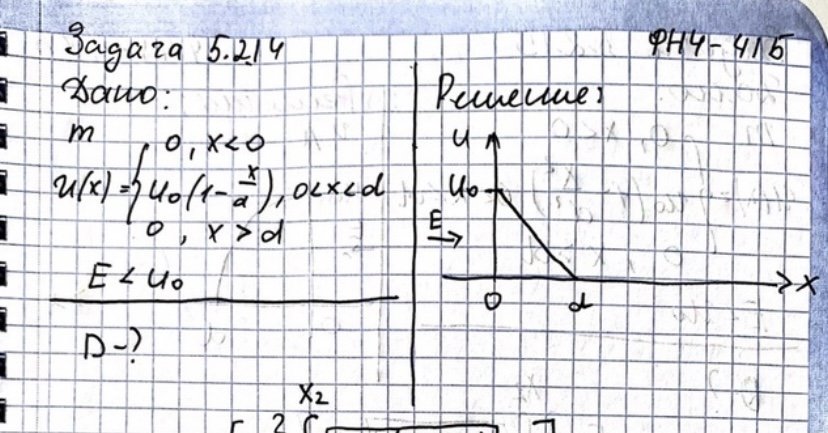 Задача 5.214
ФН4-41Б
Дано:
m
U(x) = { 0, x<0
U₀(1-x/d), 0<x<d
0, x>d
E < U₀
D-?
Решение:
U
U₀
E
0
d
x
x₂
[ 2 ∫ ]